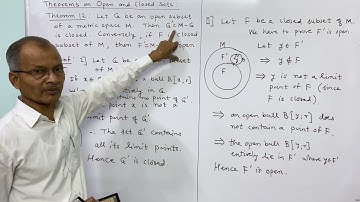 Theorems on Open and Closed Sets:
Theorem 12. Let G be an open subset
of a metric space M. Then G'=M-G
is closed. Conversely, if F is closed
subset of M, then F'=M-
open
B[x, r]
no point of G'
point x is not a
limit point of G'
∴ The set G' contains
all its limit points.
Hence G' is closed
Let F be a closed subset of M.
We have to prove F' is open
M
F'
F
Let y ∈ F'
⇒ y ∉ F
⇒ y is not a limit
point of F (since
F is closed)
⇒ an open ball B[y; r] does
not contain a point of F.
⇒ an open ball B[y; r]
entirely lie in F' where y∈F'
Hence F' is open.